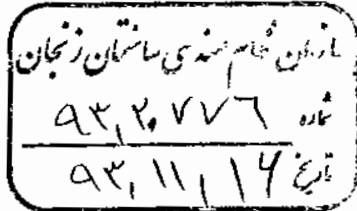 سازمان نظام مهندسی ساختمان زنجان
شماره ۹۳,۲۰۷۷۶
تاریخ ۹۳,۱۱,۱۴